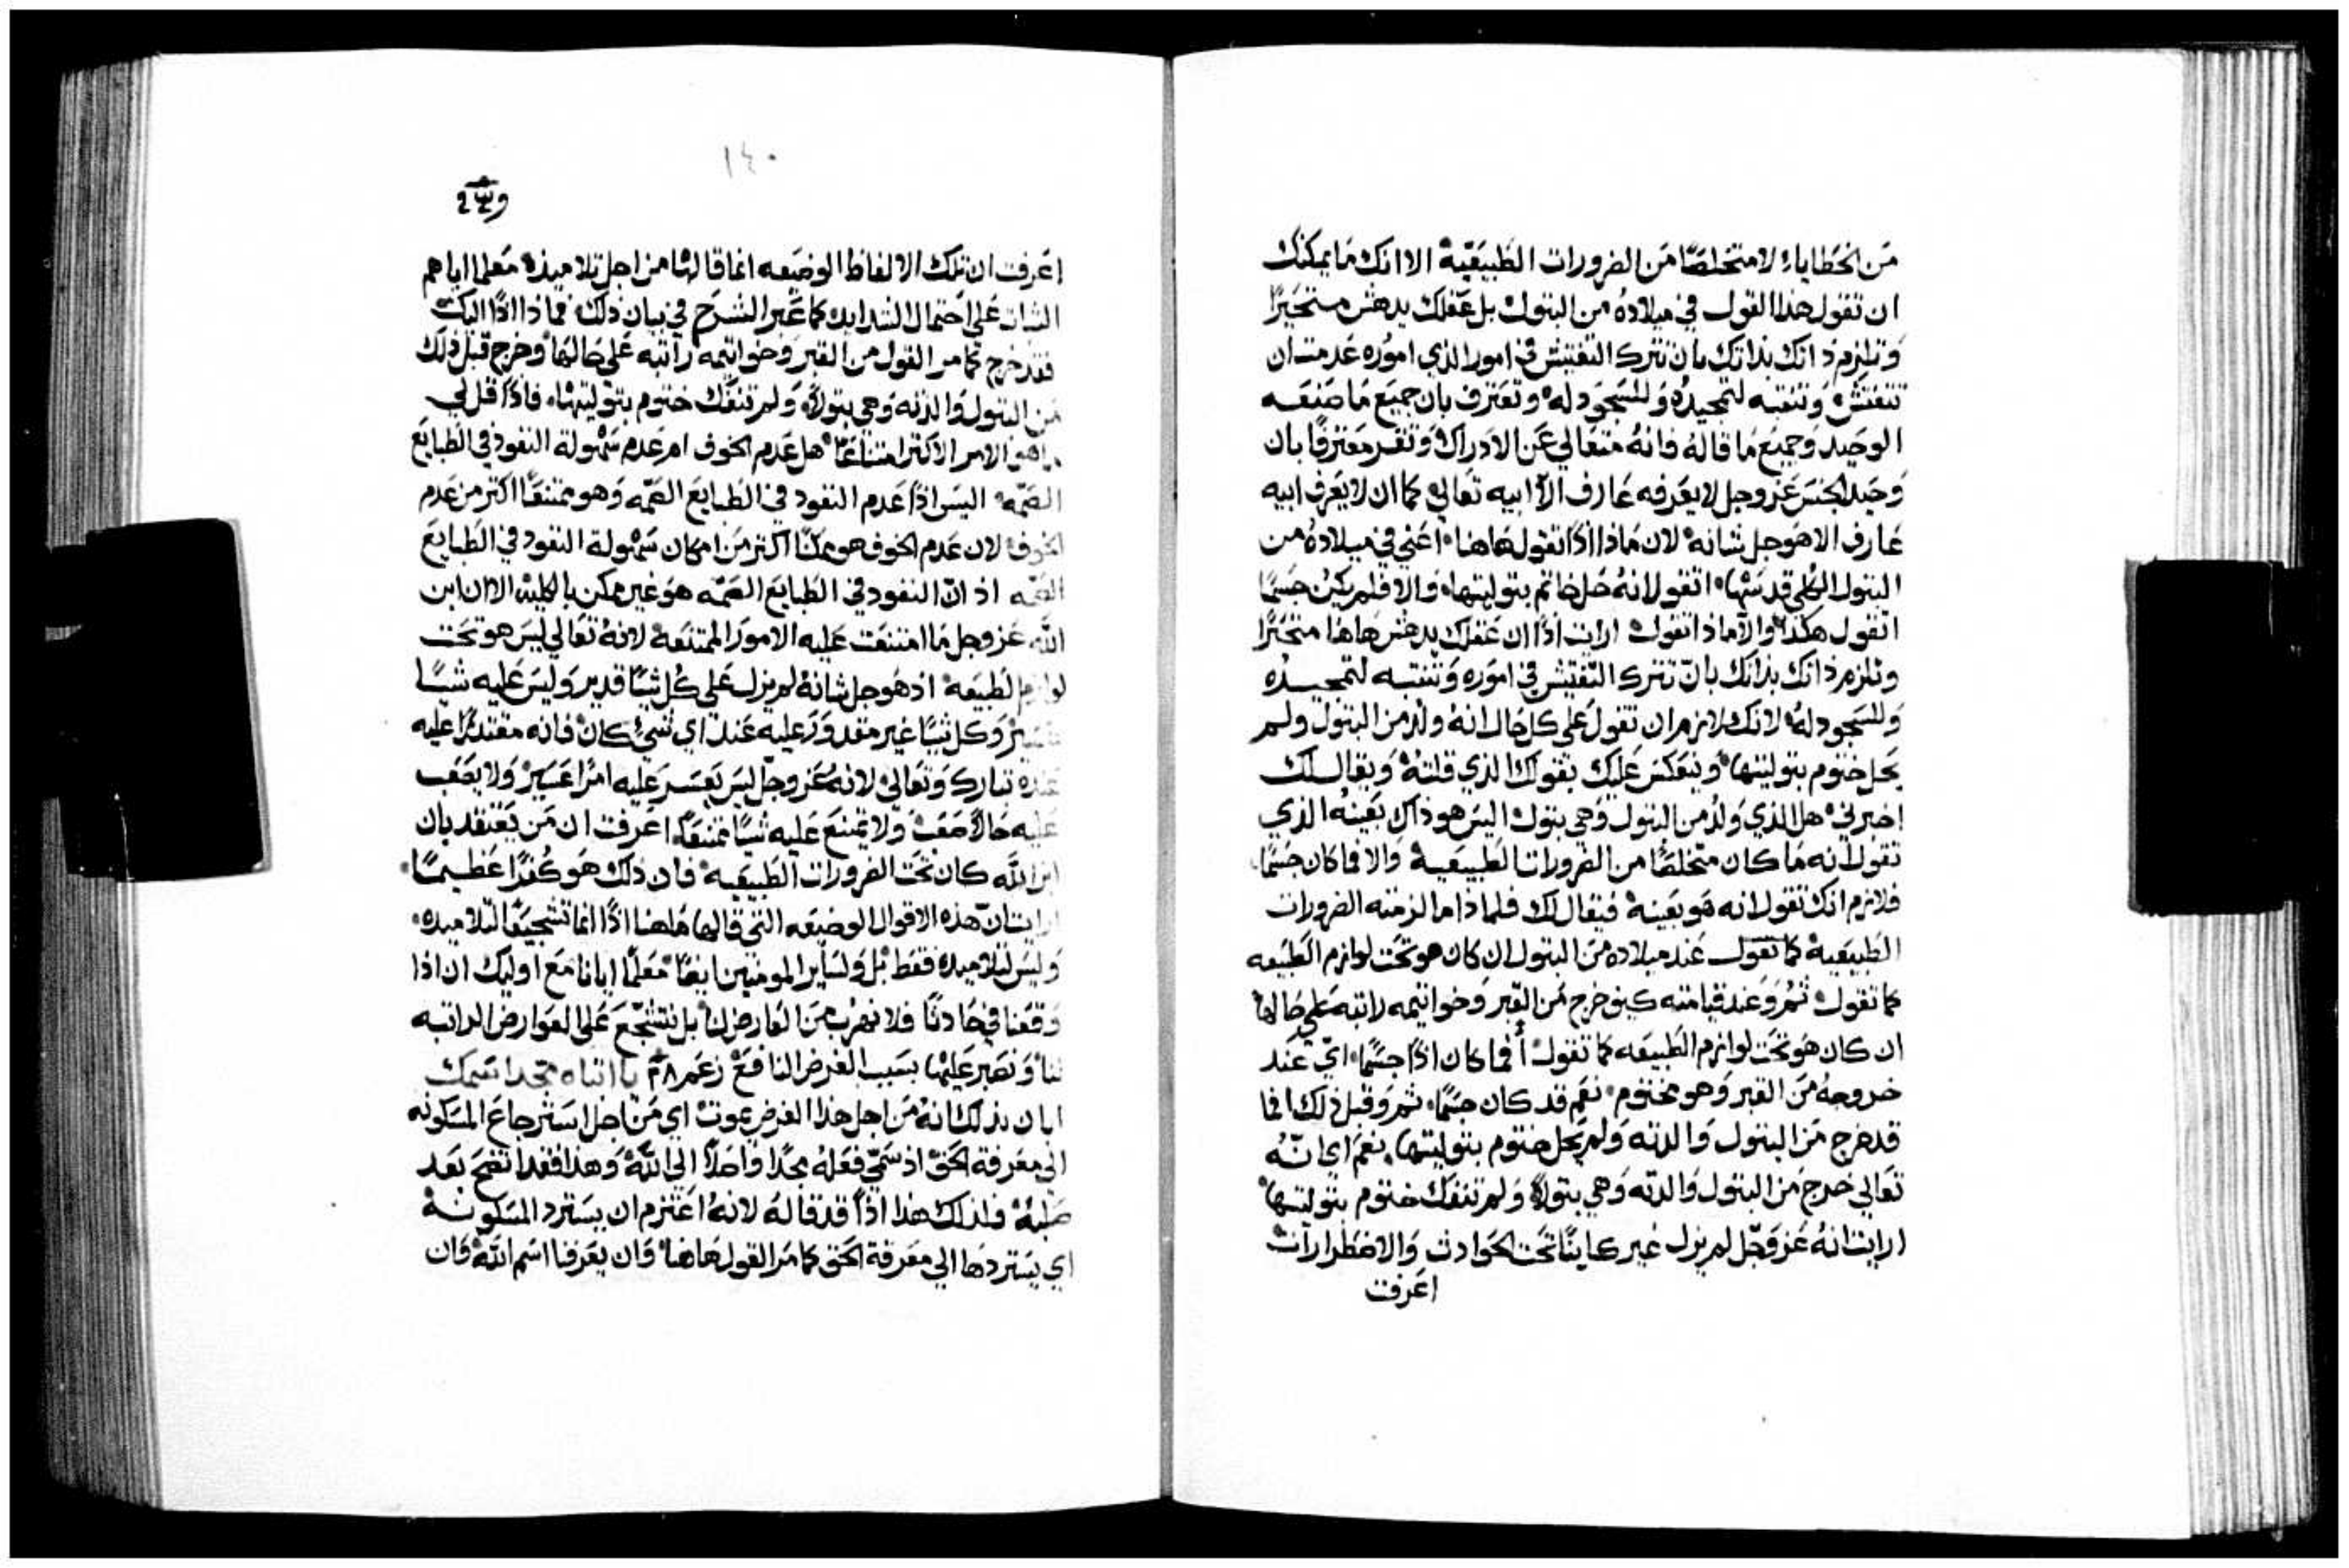 من الخطايا، لا متخلصًا من الضرورات الطبيعية الا انك ما يمكنك
ان تقول هذا القول في ميلاده من البتول بل عقلك يدهش متحيرًا
وتلزم ذاتك بذاتك بان تترك التفتيش في امور الذي اموره عدمت ان
تتفتش وتنتبه لتمجيده وللسجود له وتعترف بان جميع ما صنعه
الوحيد وجميع ما قاله فانه متعالي عن الادراك وتقر معترفًا بان
وحيد الجنس عز وجل لا يعرفه عارف الا ابيه تعالي كما ان لا يعرف ابيه
عارف الا هو جل شانه لان ماذا اذًا تقول هاهنا اعني في ميلاده من
البتول الكلي قدسها، اتقول انه حل خاتم بتوليتها، والا فلم يكن جسمًا
اتقول هكذا والا ماذا تقول ارايت اذًا ان عقلك يدهش هاهنا متحيرًا
وتلزم ذاتك بذاتك بان تترك التفتيش في اموره وتنتبه لتمجيده
وللسجود له لانك لازم ان تقول علي كل حال انه ولد من البتول ولم
يحل ختوم بتوليتها وينعكس عليك بقولك الذي قلته ويقال لك
اخبرني هل الذي ولد من البتول وهي بتول اليس هو ذاك بعينه الذي
تقول انه ما كان متخلصًا من الضرورات الطبيعية والا فما كان جسمًا
فلازم انك تقول انه هو بعينه فيقال لك فلماذا ما لزمته الضرورات
الطبيعية كما تقول عند ميلاده من البتول ان كان هو تحت لوازم الطبيعه
كما تقول ثم وعند قيامته كيف خرج من القبر وخواتيمه راتبه علي حالها
ان كان هو تحت لوازم الطبيعه كما تقول أفما كان اذًا جسمًا، اي عند
خروجه من القبر وهو مختوم نعم قد كان جسمًا، ثم وقبل ذلك انما
قد خرج من البتول والدته ولم يحل ختوم بتوليتها، نعم اي انه
تعالي خرج من البتول والدته وهي بتولاً ولم تنفك ختوم بتوليتها
ارايت انه عز وجل لم يزل غير كاينًا تحت الحوادث والاضطرارات
اعرفت
١٤٠
اعرفت ان تلك الالفاظ الوضيعه انما قالها من اجل تلاميذه معلما اياهم
الثبات علي احتمال الشدايد كما عبر الشرح في بيان ذلك فماذا اذًا اليك
فقد خرج كما مر القول من القبر وخواتيمه راتبه علي حالها وخرج قبل ذلك
من البتول والدته وهي بتولاً، ولم تنفك ختوم بتوليتها، فاذًا قل لي
ما هو الامر الاكثر امتناعًا هل عدم الخوف ام عدم سهولة النفوذ في الطبايع
الصمه اليس اذًا عدم النفود في الطبايع الصمه وهو ممتنعًا اكثر من عدم
الخوف لان عدم الخوف هو ممكنًا اكثر من امكان سهولة النفود في الطبايع
الصمه اذ ان النفود في الطبايع الصمه هو غير ممكن بالكلية الا ان ابن
الله عز وجل ما امتنعت عليه الامور الممتنعه لانه تعالي ليس هو تحت
لوازم الطبيعه اذ هو جل شانه لم يزل علي كل شيًا قدير وليس عليه شيًا
عسير وكل شيًا غير مقدور عليه عند اي شيء كان فانه مقتدرًا عليه
عنده تبارك وتعالي لانه عز وجل ليس يعسر عليه امرًا عسير ولا يصعب
عليه حالاً صعب ولا يمتنع عليه شيًا ممتنعًا، اعرفت ان من يعتقد بان
ابن الله كان تحت الضرورات الطبيعيه فان ذلك هو كفرًا عظيمًا
ارايت ان هذه الاقوال الوضيعه التي قالها هاهنا اذًا انما تشجيعًا لتلاميده
وليس لتلاميده فقط بل ولساير المومنين ايضًا معلمًا ايانا مع اوليك ان اذا
وقعنا في حادثًا فلا نهرب من العارض لنا بل نتشجع علي العوارض الراتبه
لنا ونصبر عليها بسبب الغرض النافع زعم ٢٨ يا ابتاه مجد اسمك
ابان بذلك انه من اجل هذا الغرض يموت اي من اجل استرجاع المسكونه
الي معرفة الحق اذ سمي فعله مجدًا واصلاً الي الله وهذا فقد اتضح بعد
صلبه فلذلك هذا اذًا قد قاله لانه اعتزم ان يسترد المسكونه
اي يستردها الي معرفة الحق كما مر القول هاهنا وان يعرفنا اسم الله وان